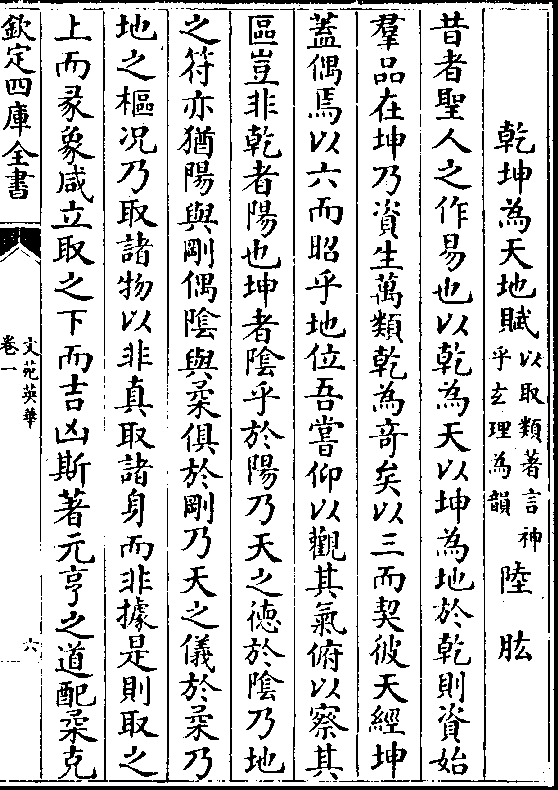 乾坤為天地賦以取類著言神乎玄理為韻 陸肱
昔者聖人之作易也以乾為天以坤為地於乾則資始
羣品在坤乃資生萬類乾為奇矣以三而契彼天經坤
蓋偶焉以六而昭乎地位吾嘗仰以觀其氣俯以察其
區豈非乾者陽也坤者陰乎於陽乃天之德於陰乃地
之符亦猶陽與剛偶陰與柔俱於剛乃天之儀於柔乃
地之樞况乃取諸物以非真取諸身而非據是則取之
上而彖象咸立取之下而吉凶斯著元亨之道配柔克
欽定四庫全書
文苑英華
卷一
六